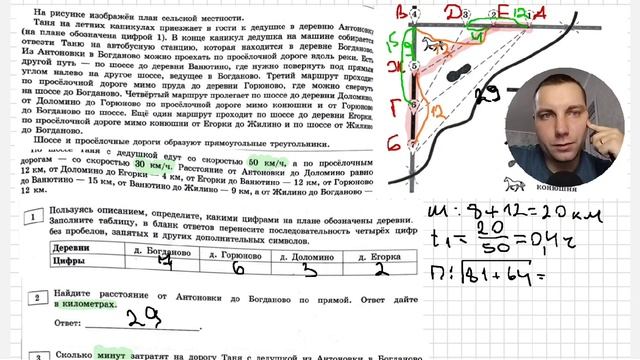 На рисунке изображён план сельской местности.
Таня на летних каникулах приезжает в гости к дедушке в деревню Антоновку
(на плане обозначена цифрой 1). В конце каникул дедушка на машине собирается
отвезти Таню на автобусную станцию, которая находится в деревне Богданово.
Из Антоновки в Богданово можно проехать по просёлочной дороге вдоль реки. Есть
другой путь — по шоссе до деревни Ванютино, где нужно повернуть под прямым
углом налево на другое шоссе, ведущее в Богданово. Третий маршрут проходит
по просёлочной дороге мимо пруда до деревни Горюново, где можно свернуть
на шоссе до Богданово. Четвёртый маршрут пролегает по шоссе до деревни Доломино,
от Доломино до Горюново по просёлочной дороге мимо конюшни и от Горюново
до Богданово по шоссе. Ещё один маршрут проходит по шоссе до деревни Егорка,
по просёлочной дороге мимо конюшни от Егорки до Жилино и по шоссе от Жилино
до Богданово.
Шоссе и просёлочные дороги образуют прямоугольные треугольники.
По шоссе Таня с дедушкой едут со скоростью 50 км/ч, а по просёлочным
дорогам — со скоростью 30 км/ч. Расстояние от Антоновки до Доломино равно
12 км, от Доломино до Егорки — 4 км, от Егорки до Ванютино — 12 км, от Горюново
до Ванютино — 15 км, от Ванютино до Жилино — 9 км, а от Жилино до Богданово —
12 км.
1 Пользуясь описанием, определите, какими цифрами на плане обозначены деревни.
Заполните таблицу, в бланк ответов перенесите последовательность четырёх цифр
без пробелов, запятых и других дополнительных символов.
Деревни д. Богданово д. Горюново д. Доломино д. Егорка
Цифры 6 3 2
2 Найдите расстояние от Антоновки до Богданово по прямой. Ответ дайте
в километрах.
Ответ: 29
3 Сколько минут затратят на дорогу Таня с дедушкой из Антоновки в Богданово
В D E A
Ж
Г
Б
12
4
9
15
12
29
конюшня
Ш: 8+12=20 км
t₁ = 20/50 = 0,4 ч
П: √81+64 =